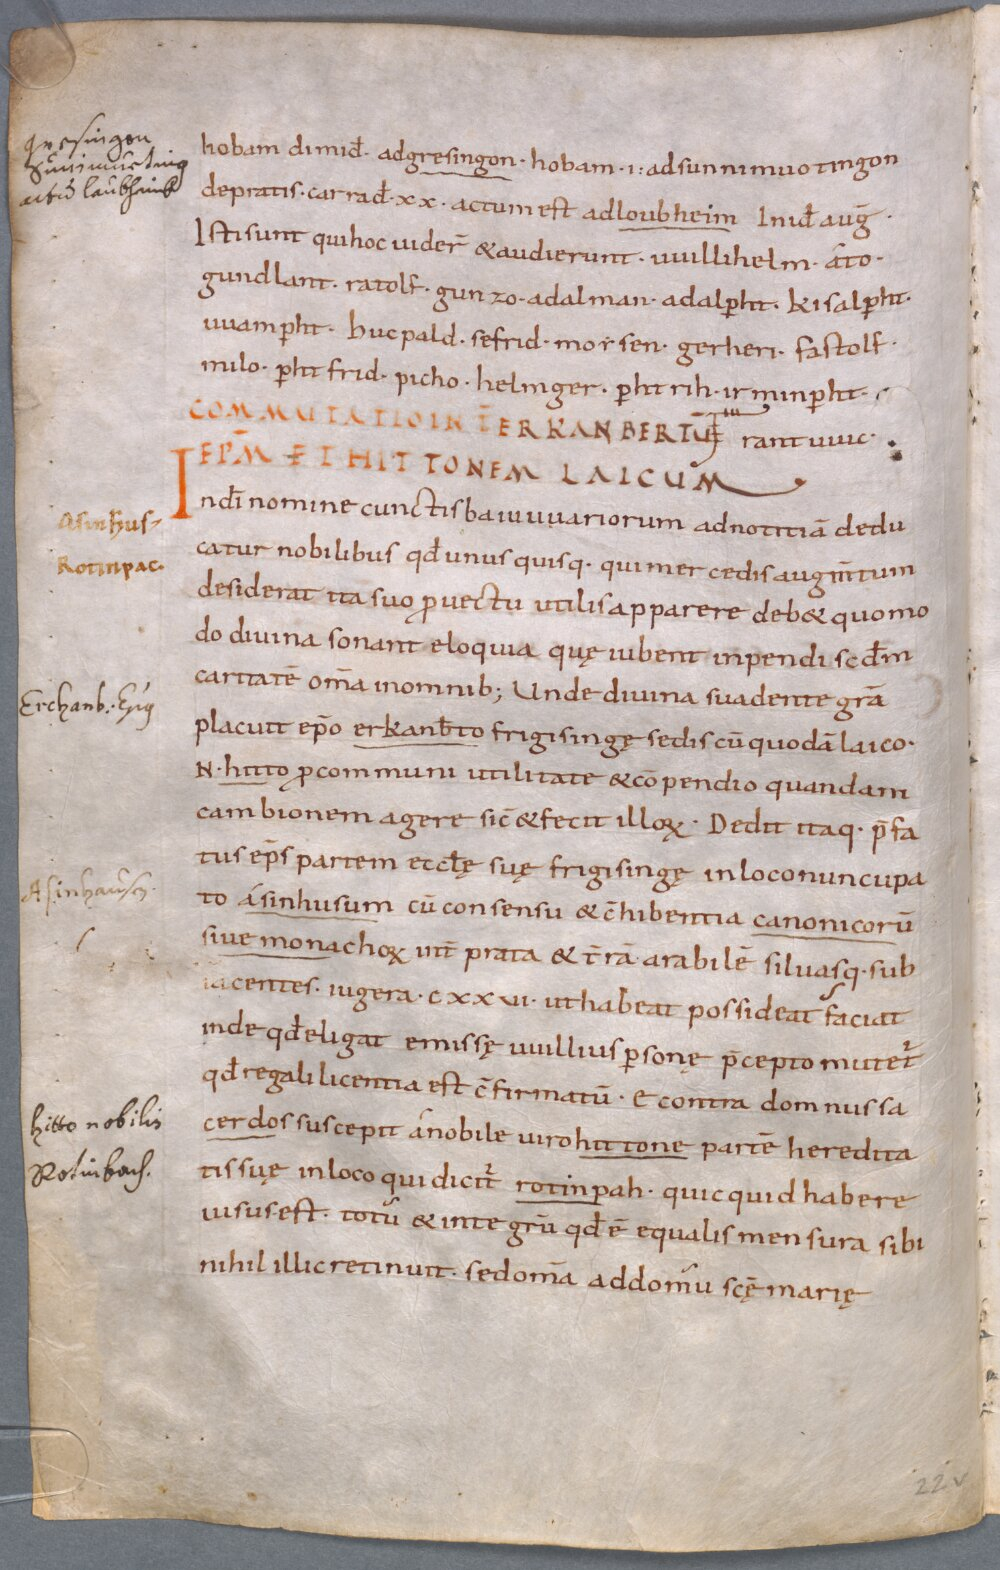 Gresingen
Sunimueting
actū laubhaimb
hobam dimid̄· adgresingon· hobam· ı: adsunnimuotingon
depratis· carrad̄· xx· actum est adloubheim Inid̄ auḡ·
Isti sunt quihoc uider̄ &audierunt· uuillihelm· ato·
gundlant· ratolf· gunzo· adalman· adalꝑht· kisalꝑht·
uuamꝑht· hucpald· sefrid· mor sen· gerheri· fastolf·
milo· ꝑht frid· picho· helmger· ꝑht rih· irminꝑht·
COMMUTATIO INT̄ ERKANBERTŪ rant uuic·
EPM̄ ET HITTONEM LAICUM
Asinhus·
Rotinpac·
In dī nomine cunctis baiuuuariorum ad notitiā dedu
catur nobilibus qd̄ unus quisq· qui mercedis augm̄tum
desiderat ita suo ꝓuectu utilis apparere deb& quomo
do diuina sonant eloquia quę iubent inpendi scd̄m
caritatē om̄a inomnib; Unde diuina suadente grā
Erchanb. Ep̄ig
placuit ep̄o erkanb̄to frigisingę sedis cū quodā laico·
N· hitto ꝓcommuni utilitate &cōpendio quandam
cambionem agere sic̄ &fecit illoꝝ· Dedit itaq· p̄fa
tus ep̄s partem eccłę suę frigisingę inloco nuncupa
Asinhausen·
to asinhusum cū consensu &c̄hibentia canonicorū
siue monachoꝝ int̄ prata & t̄rā arabilē siluasq· sub
iacentes· iugera· cxxvi· ut habeat possideat faciat
inde qd̄eligat emissę uuillius ꝑsonę p̄cepto mutet᷑
qd̄ regali licentia est c̄firmatū· E contra domnus sa
hitto nobilis
cerdos suscepit a nobile uiro hittone partē heredita
Rotinbach.
tis suę inloco qui dicit᷑ rotinpah· quicquid habere
uisus est· totū & integrū qd̄ ē equalis mensura sibi
nihil illic retinuit· sed om̄a ad domū scę̄ marię
22v